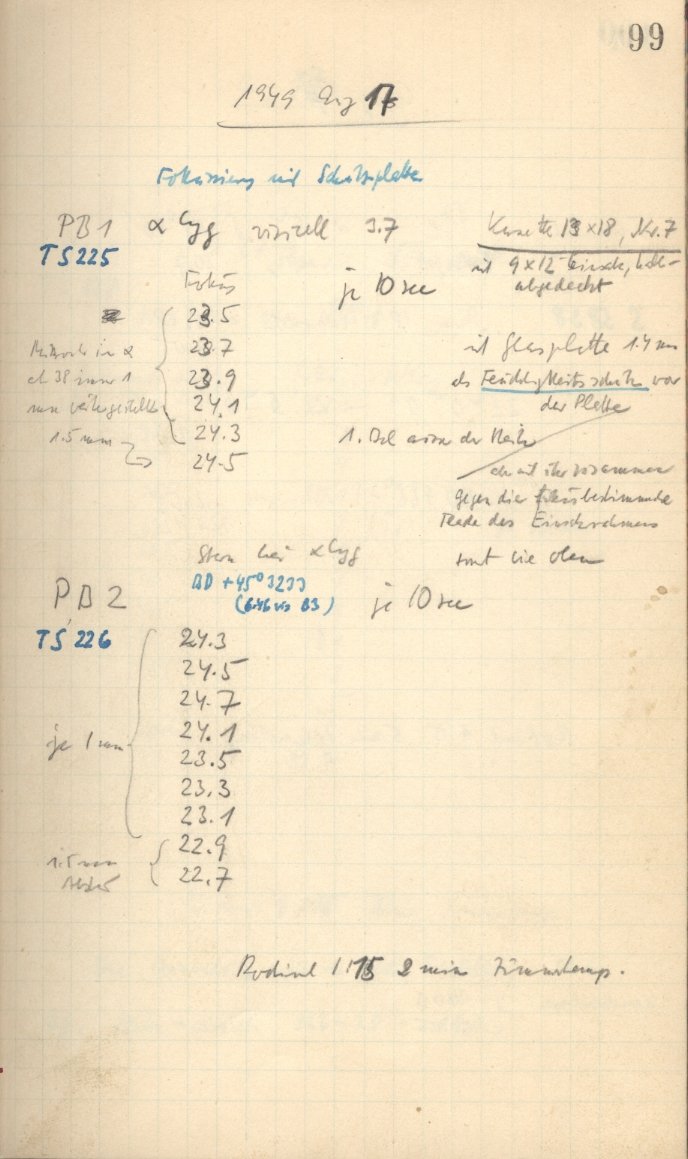 99
1949 Aug 17
Fokussierung mit Schutzplatte
PB1 α Cyg visuell 3.7
TS225
Kassette 13×18, Nr. 7
mit 9×12 Einsch,
abgedeckt
Fokus
je 10 sec
23.5
23.7
23.9
24.1
24.3
24.5
in α
ab 38 immer 1
mm weitergestellt
1.5 mm
mit Glasplatte 1.4 mm
als Feuchtigkeitsschutz vor
der Platte
1. Bel der Reihe
gegen die
des Einsteckrahmens
sonst wie oben
Stern bei α Cyg
PB2
BD +45° 3233
(6.46 vis B3)
je 10 sec
TS 226
24.3
24.5
24.7
24.1
23.5
23.3
23.1
22.9
22.7
je 1 mm
1.5 mm
Rodinal 1:15 2 min Zimmertemp.